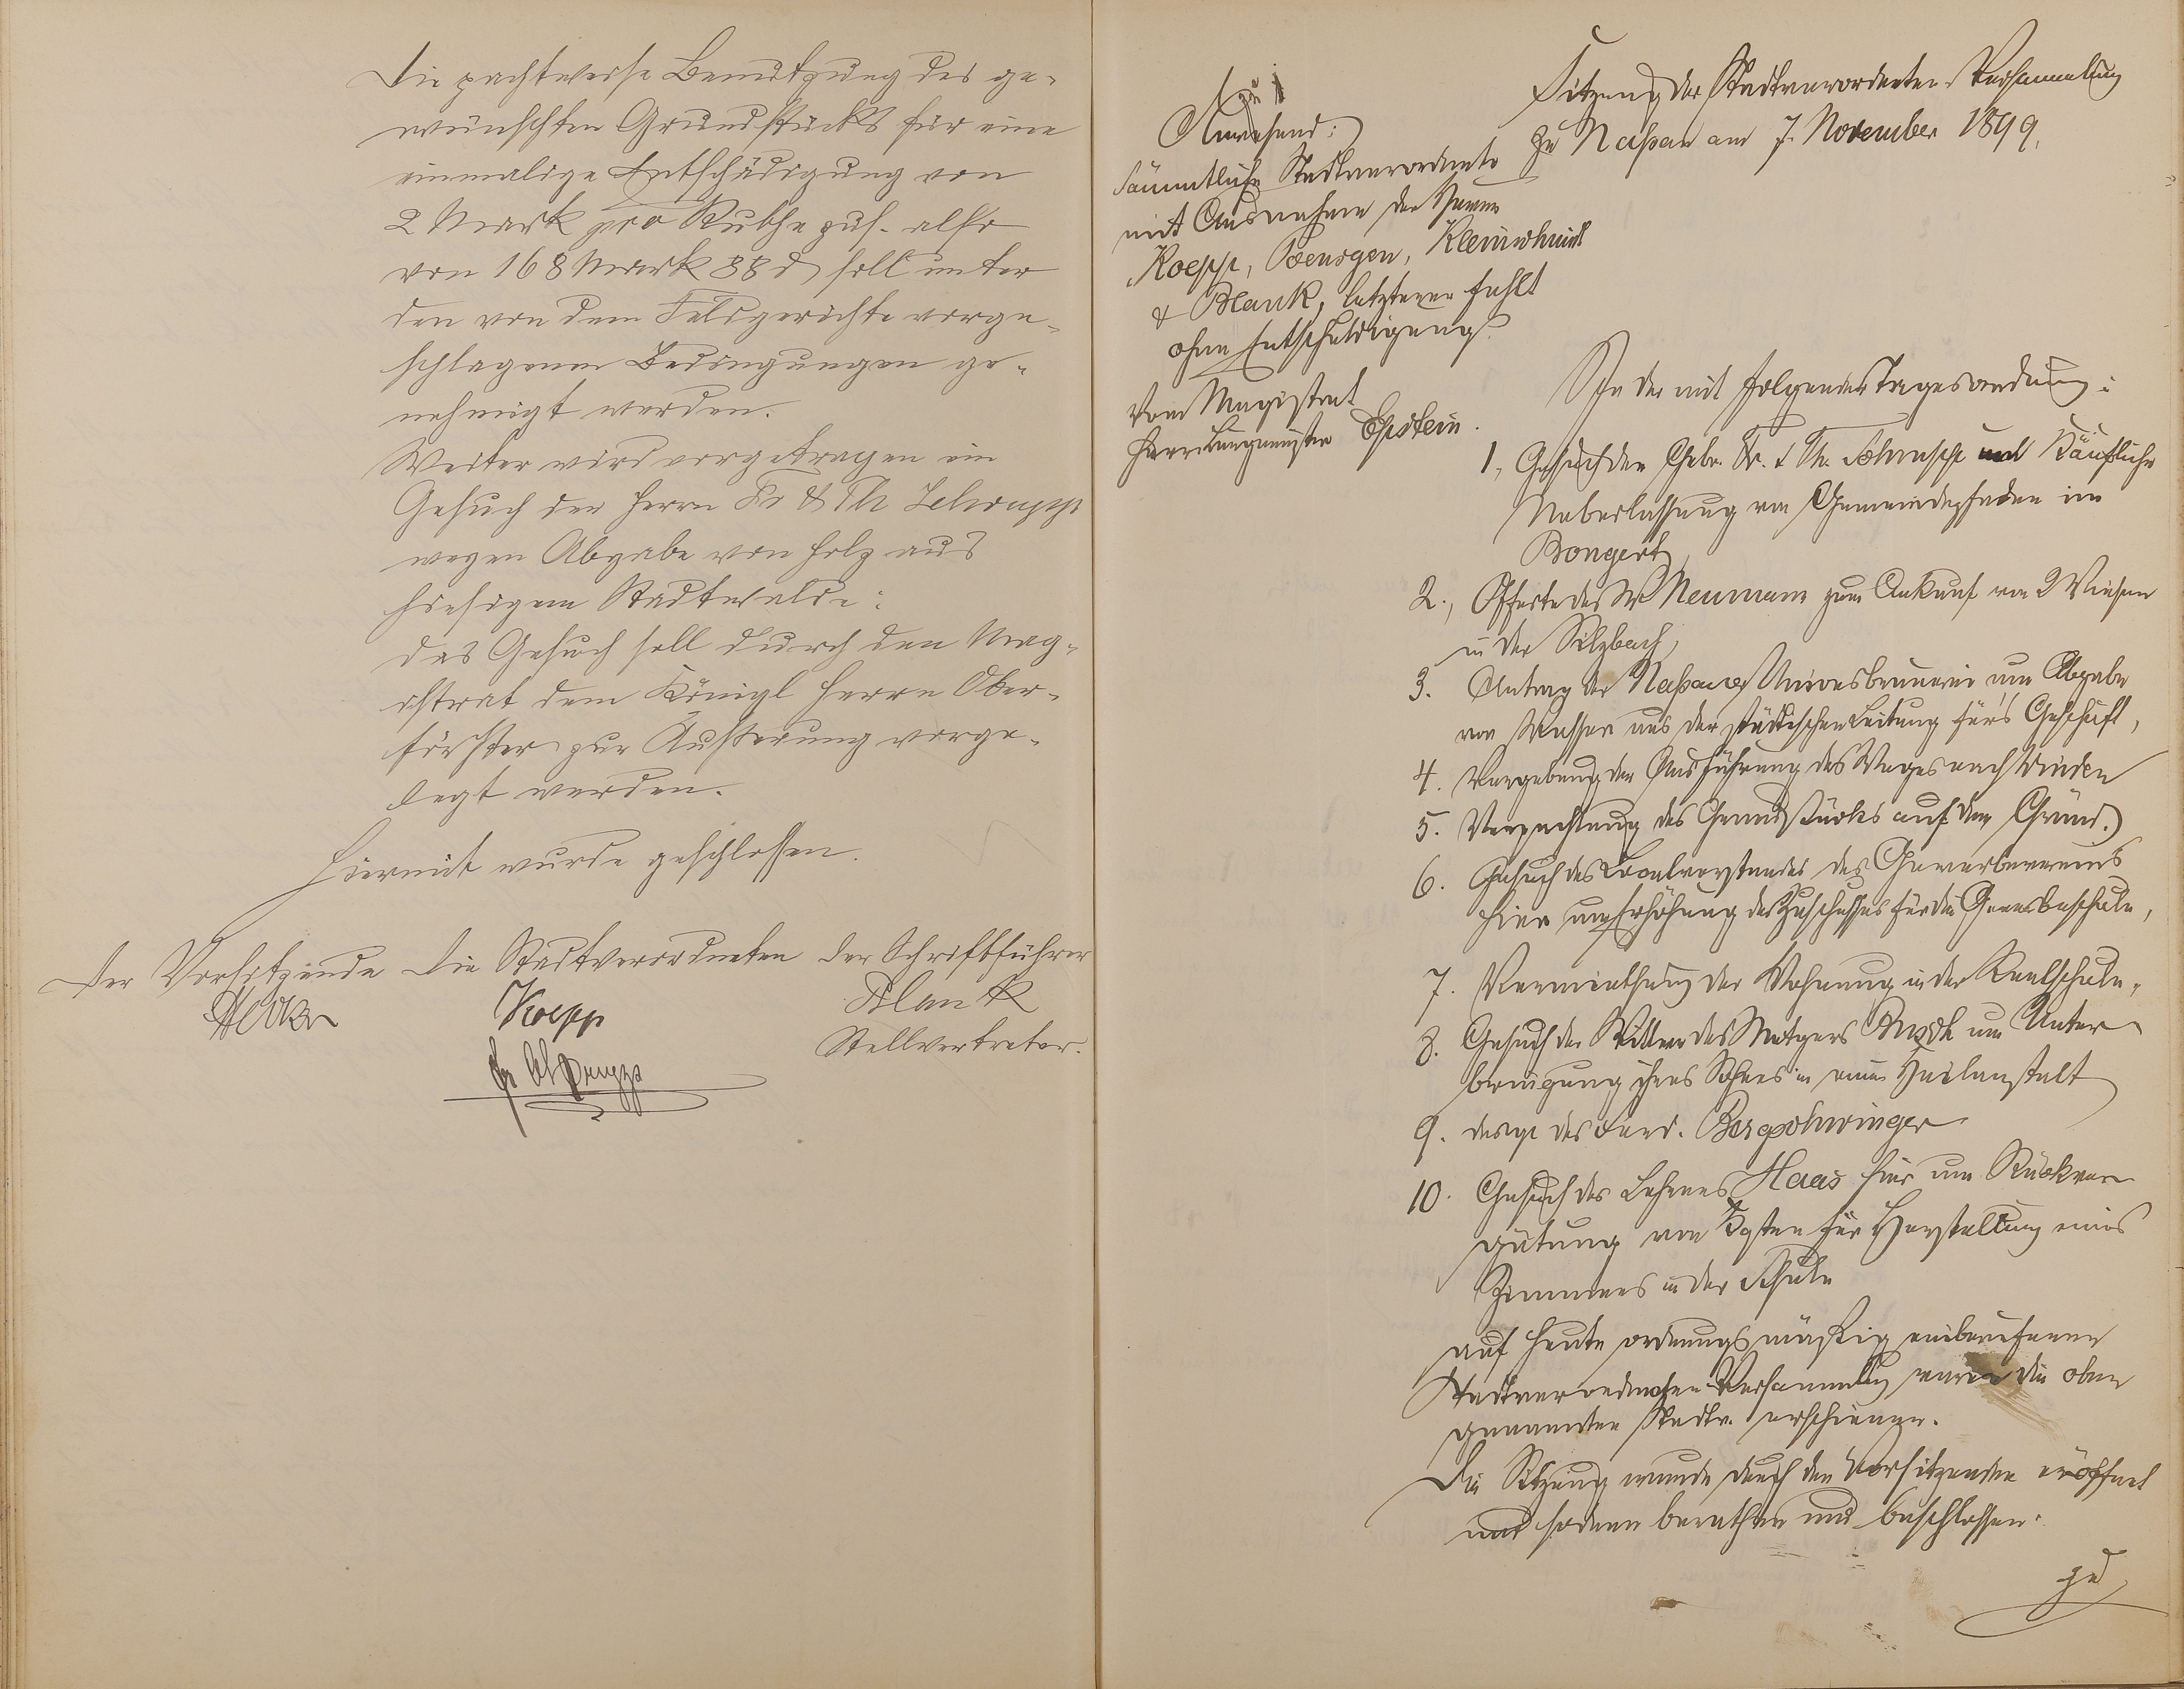 Die pachtweise Benutzung des ge-
wünschten Grundstücks für eine
einmalige Entschädigung von
2 Mark pro Ruthe zus. also
von 168 Mark 88 d soll unter
den von dem Feldgerichte vorge-
schlagenen Bedingungen ge-
nehmigt werden.
Weiter wird vorgetragen ein
Gesuch der Herrn Fr & Th Schrupp
wegen Abgabe von Holz aus
hiesigem Stadtwalde:
das Gesuch soll durch den Mag-
istrat dem Königl Herrn Ober-
förster zur Äußerung vorge-
legt werden.
Hiermit wurde geschlossen.
Der Vorsitzende Die Stadtverordneten Der Schriftführer
Koepp
Blank
Stellvertreter.
Anwesend:
sämmtliche Stadtverordnete
mit Ausnahme der Herren
Koepp, Poensgen, Kleinschmidt
& Blank, letzterer fehlt
ohne Entschuldigung.
Vom Magistrat
Herr Bürgermeister Epstein.
Sitzung der Stadtverordneten-Versammlung
zu Naßau am 7. November 1899.
In der mit folgender Tagesordnung:
1, Gesuch der Gebr. Fr. & Th. Schrupp um Käufliche
Ueberlassung von Gemeindepfaden im
Bongert,
2., Offerte des W Neumann zum Ankauf von 2 Wiesen
in der Silzbach,
3. Antrag der Naßauer Unionsbrauerei um Abgabe
von Wasser aus der städtischen Leitung für's Geschäft,
4. Vergebung der Ausführung des Weges nach Winden
5. Verpachtung des Grundstücks auf dem Grund.
6. Gesuch des Localvorstandes des Gewerbevereins
hier um Erhöhung des Zuschusses für die Gewerbeschule,
7. Vermiethung der Wohnung in der Realschule,
8. Gesuch der Wittwe des Metzgers um Unter-
bringung ihres Sohnes in einer Heilanstalt
9. desgl des Ferd. Bergschwinger
10. Gesuch des Lehrers Haas hier um Rückver-
gütung von Kosten für Herstellung eines
Zimmers in der Schule
auf heute ordnungsmäßig einberufenen
Stadtverordneten-Versammlung waren die oben
genannten Stadtv. erschienen.
Die Sitzung wurde durch den Vorsitzenden eröffnet
und sodann berathen und beschlossen:
zu